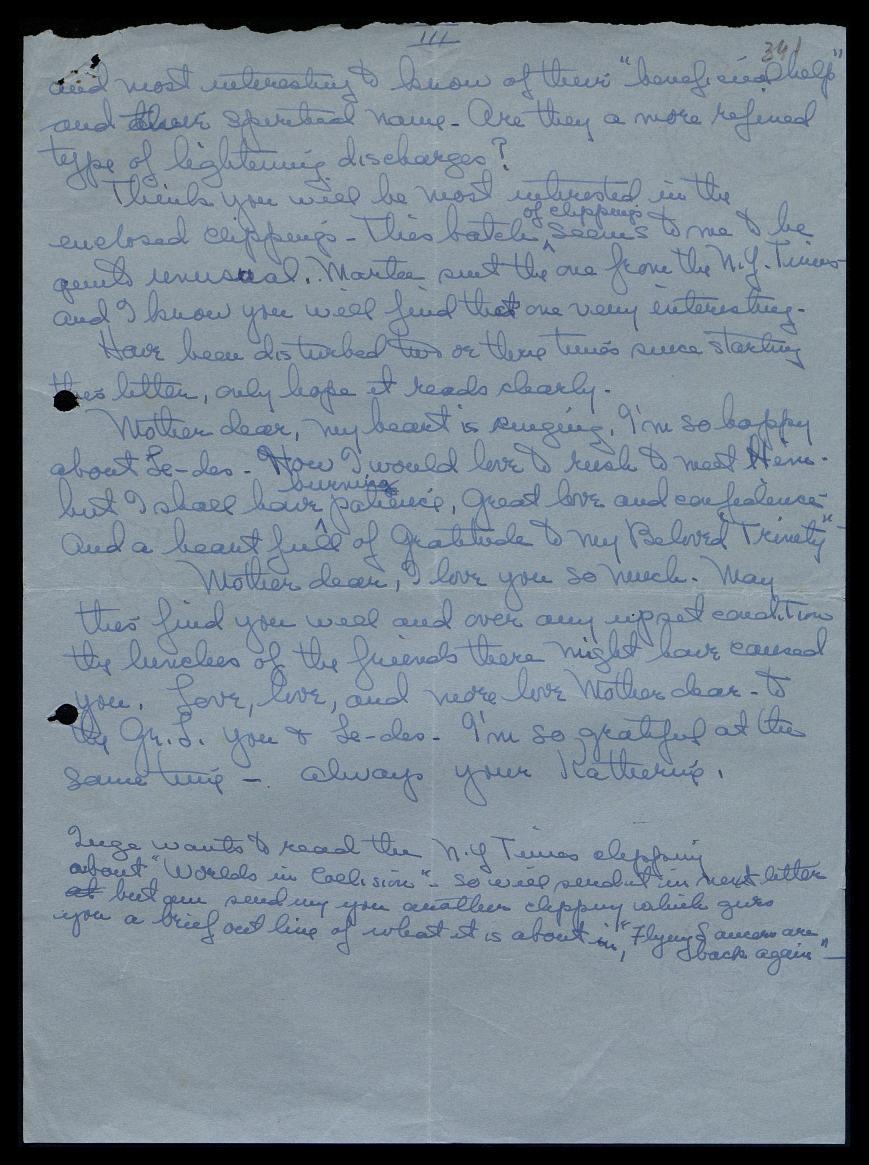 III
341
and most interesting to know of their "beneficial help"
and their spiritual name - Are they a more refined
type of lightening discharges?
Think you will be most interested in the
of clippings
enclosed clippings - This batch ^ seems to me to be
quite unusual. Martee sent the one from the N.Y. Times
and I know you will find that one very interesting.
Have been disturbed two or three times since starting
this letter, only hope it reads clearly.
Mother dear, my heart is singing, I'm so happy
about Le-des - How I would love to rush to meet Him -
burning
but I shall have ^ patience, great love and confidence
And a heart full of Gratitude to my Beloved Trinity" -
Mother dear, I love you so much. May
this find you well and over any upset condition
the lunches of the friends there might have caused
you. Love, love, and more love Mother dear - to
the Gr. S. you & Le-des - I'm so grateful at the
same time - always your Katherine.
Inge wants to read the N.Y Times clipping
about "Worlds in Collision" - so will send it in next letter
at but am sending you another clipping which gives
you a brief out line of what it is about in, "Flying Saucers are
back again" -